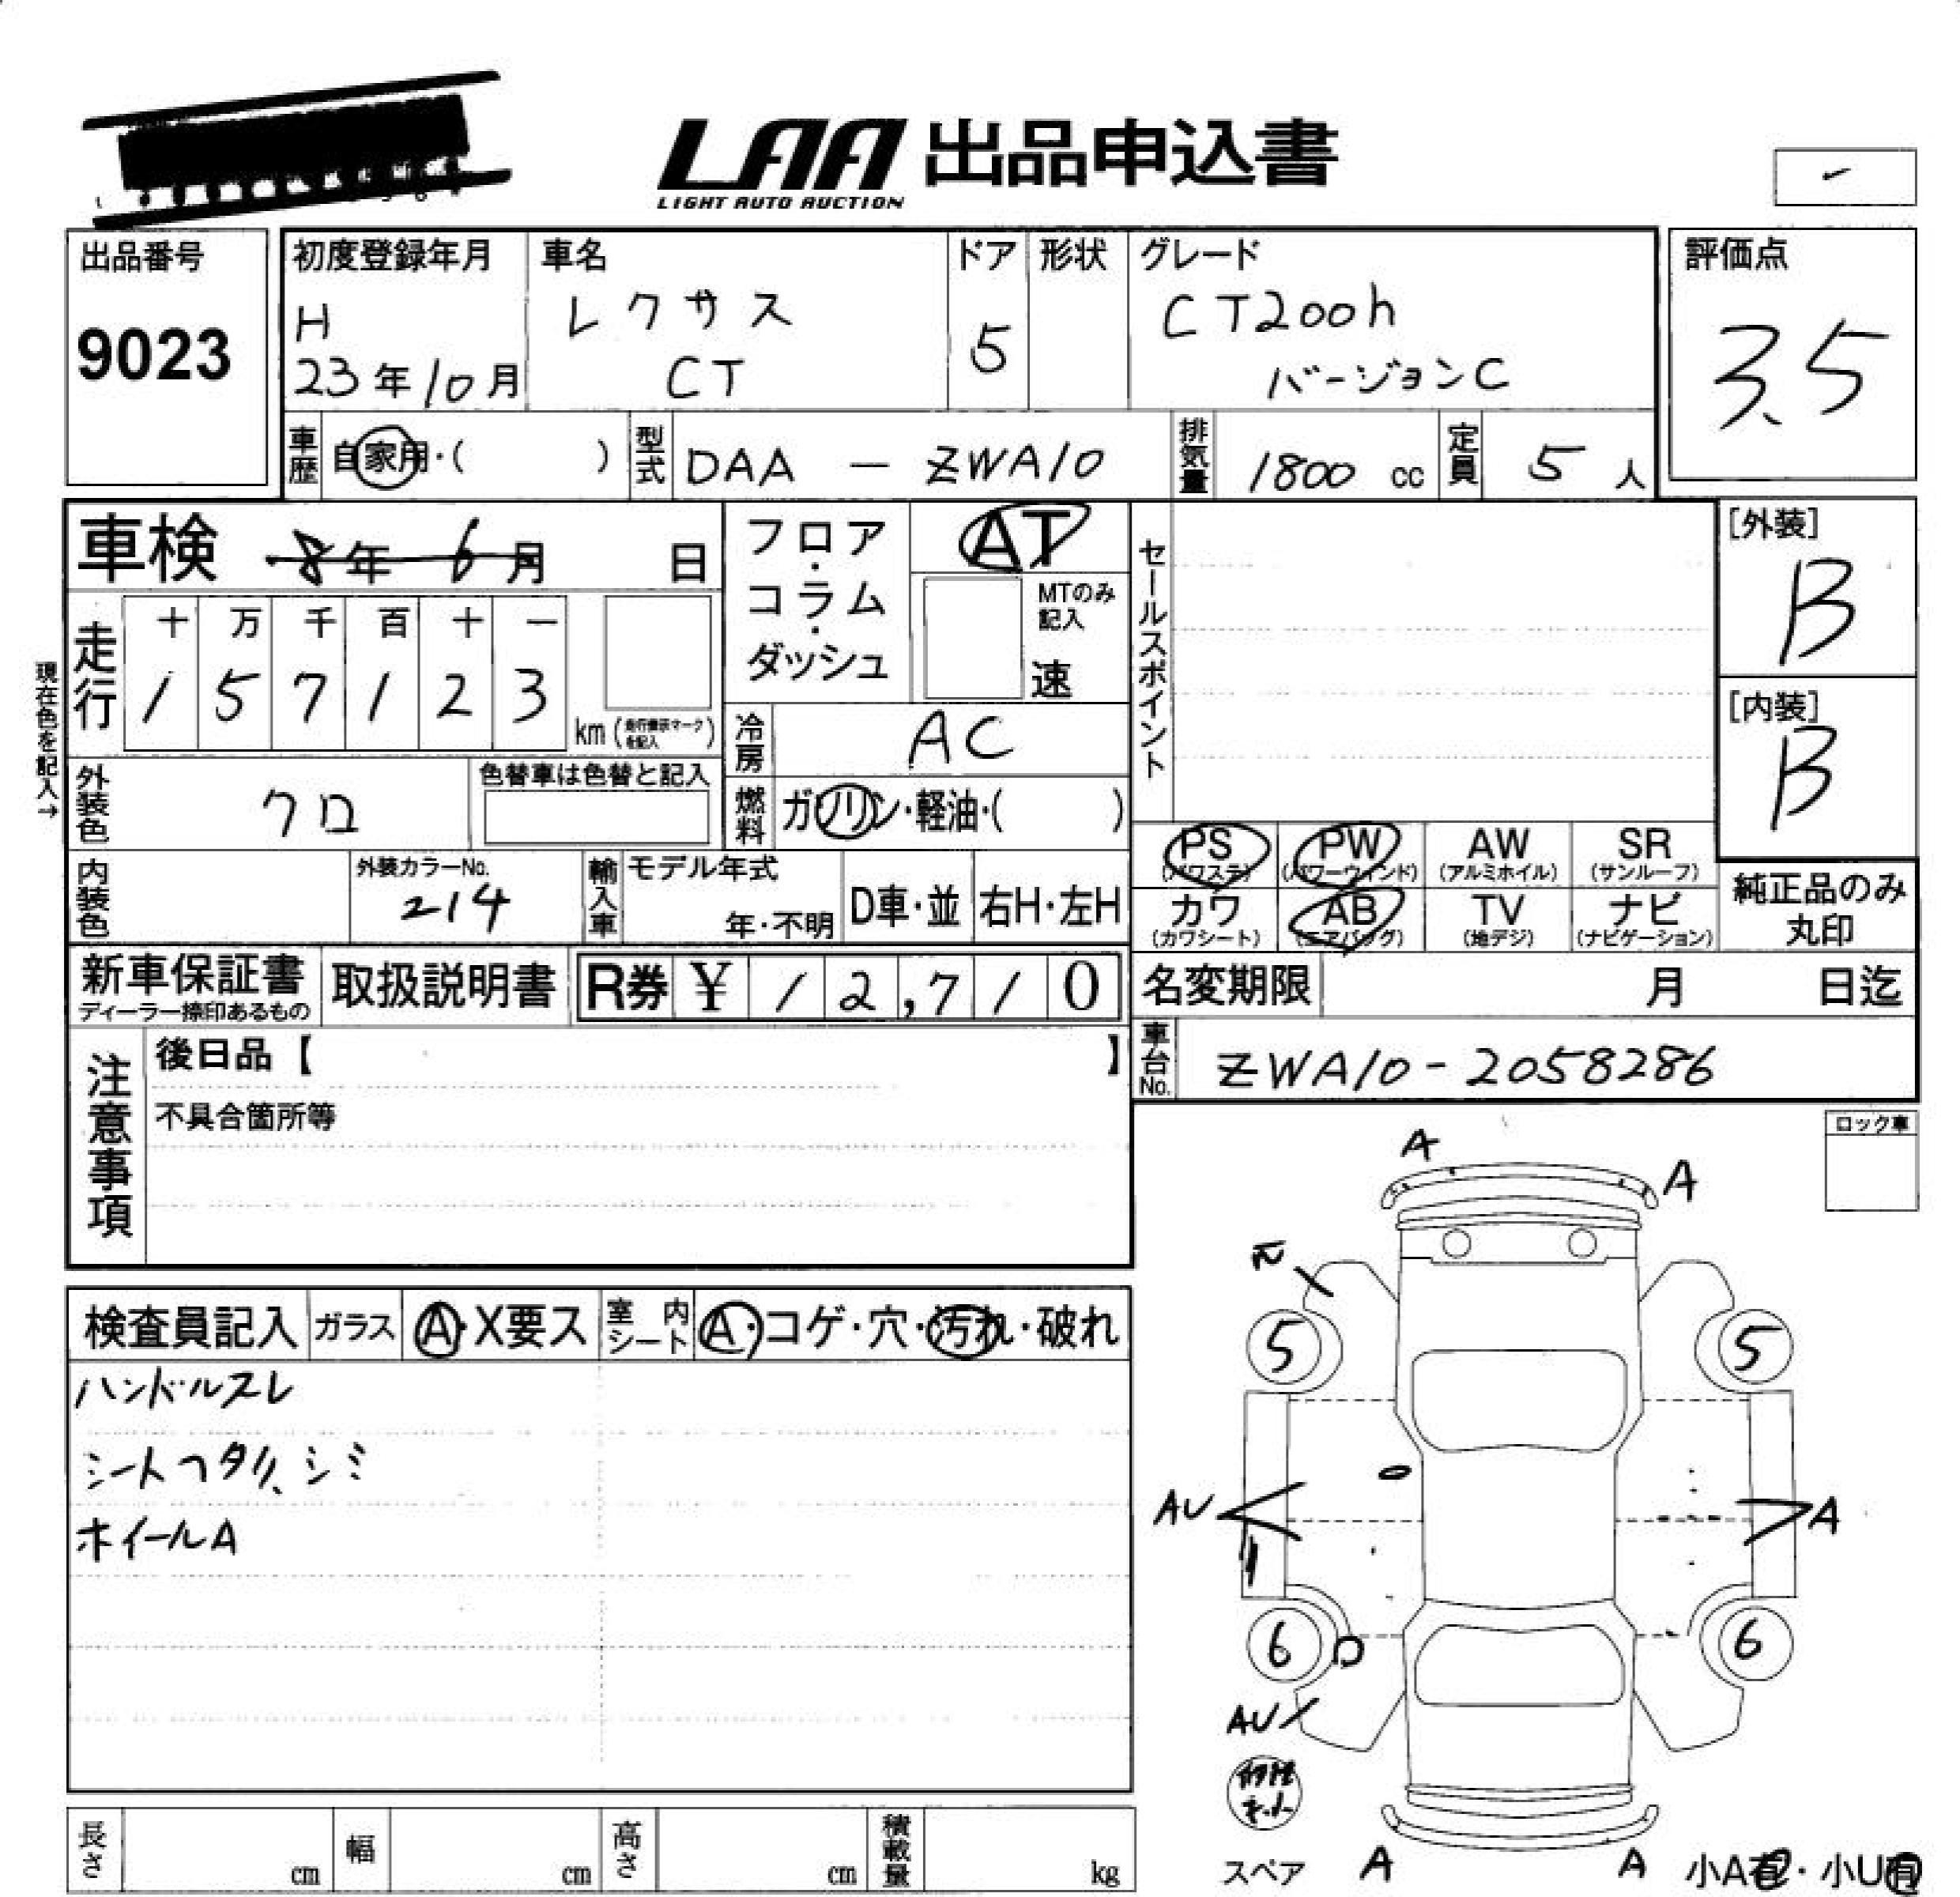 LAA 出品申込書
LIGHT AUTO AUCTION
出品番号
9023
初度登録年月
H
23年10月
車名
レクサス
CT
ドア
5
形状
グレード
CT200h
バージョンC
評価点
3.5
車歴 自家用・( )
型式 DAA - ZWA10
排気量 1800 cc
定員 5 人
車検 8年 6月 日
フロア・コラム・ダッシュ
AT
MTのみ記入
速
セールスポイント
[外装]
B
[内装]
B
現在色を記入→
走行
十 万 千 百 十 一
1 5 7 1 2 3
km (走行表示マークを記入)
冷房 AC
外装色 クロ
色替車は色替と記入
燃料 ガソリン・軽油・( )
内装色
外装カラーNo.
214
輸入車
モデル年式
年・不明
D車・並
右H・左H
PS
(パワステ)
PW
(パワーウィンド)
AW
(アルミホイル)
SR
(サンルーフ)
カワ
(カワシート)
AB
(エアバッグ)
TV
(地デジ)
ナビ
(ナビゲーション)
純正品のみ
丸印
新車保証書
ディーラー捺印あるもの
取扱説明書
R券 ¥ 12,710
名変期限 月 日迄
車台No. ZWA10-2058286
注意事項
後日品【 】
不具合箇所等
ロック車
検査員記入
ガラス A・X要ス
室内シート A・コゲ・穴・汚れ・破れ
ハンドルスレ
シートヘタリ、シミ
ホイールA
A
A
5
5
AU
A
6
6
AU
スペア
A
A
小A有・小U有
長さ cm
幅 cm
高さ cm
積載量 kg